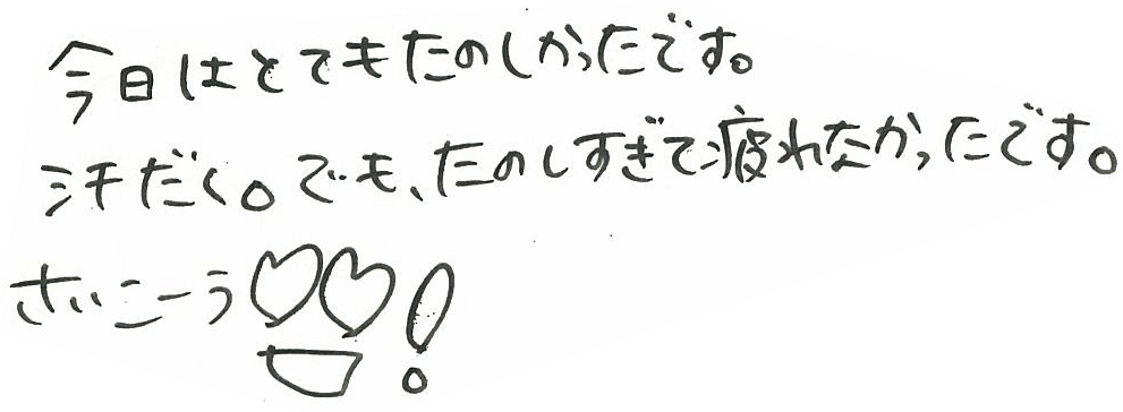 今日はとてもたのしかったです。
汗だく。でも、たのしすぎて疲れなかったです。
さいこーう♡♡!